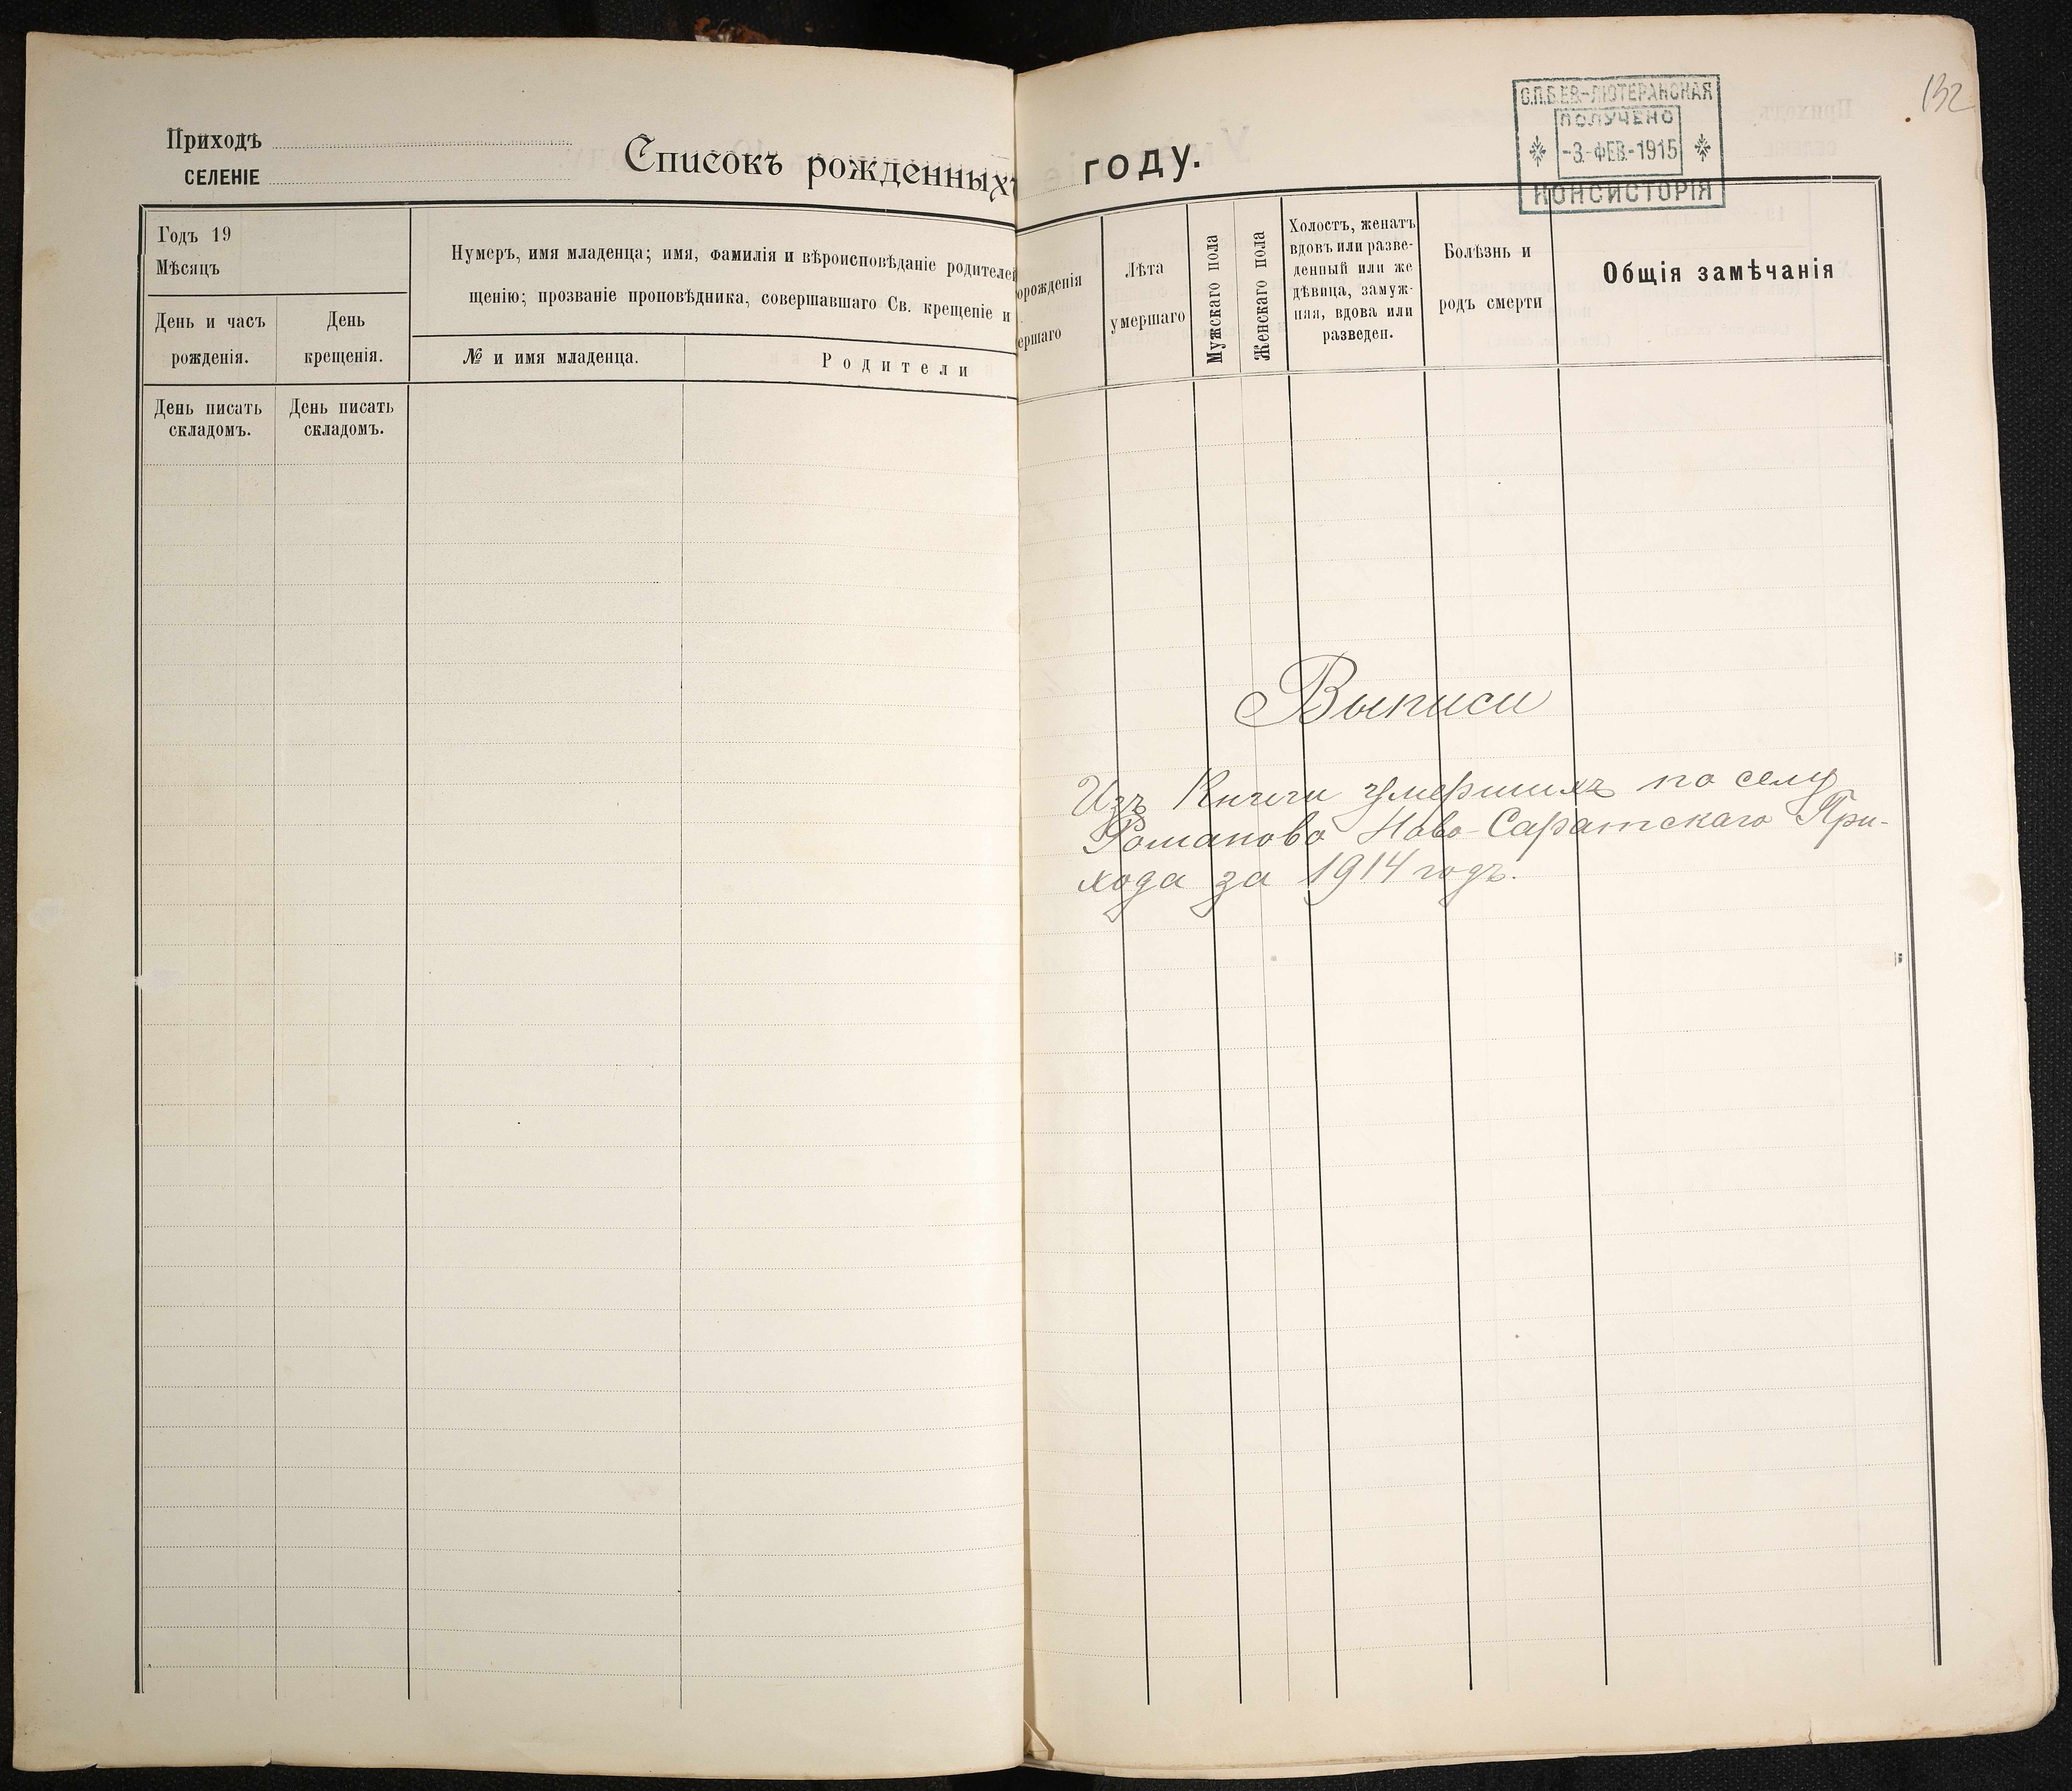 Приходъ
СЕЛЕНІЕ
Списокъ рожденныхъ
Годъ 19
Мѣсяцъ
День и часъ
рожденія.
День
крещенія.
Нумеръ, имя младенца; имя, фамилія и вѣроисповѣданіе родителей
щенію; прозваніе проповѣдника, совершавшаго Св. крещеніе и
№ и имя младенца.
Родители
День писать
складомъ.
День писать
складомъ.
году.
С.П.Б.ЕВ.-ЛЮТЕРАНСКАЯ
ПОЛУЧЕНО
-3.-ФЕВ.-1915
КОНСИСТОРІЯ
132
орожденія
ершаго
Лѣта
умершаго
Мужскаго пола
Женскаго пола
Холостъ, женатъ
вдовъ или разве-
денный или же
дѣвица, замуж-
няя, вдова или
разведен.
Болѣзнь и
родъ смерти
Общія замѣчанія
Выписи
Изъ Книги умершихъ по селу
Романово Ново-Саратскаго При-
хода за 1914 годъ.